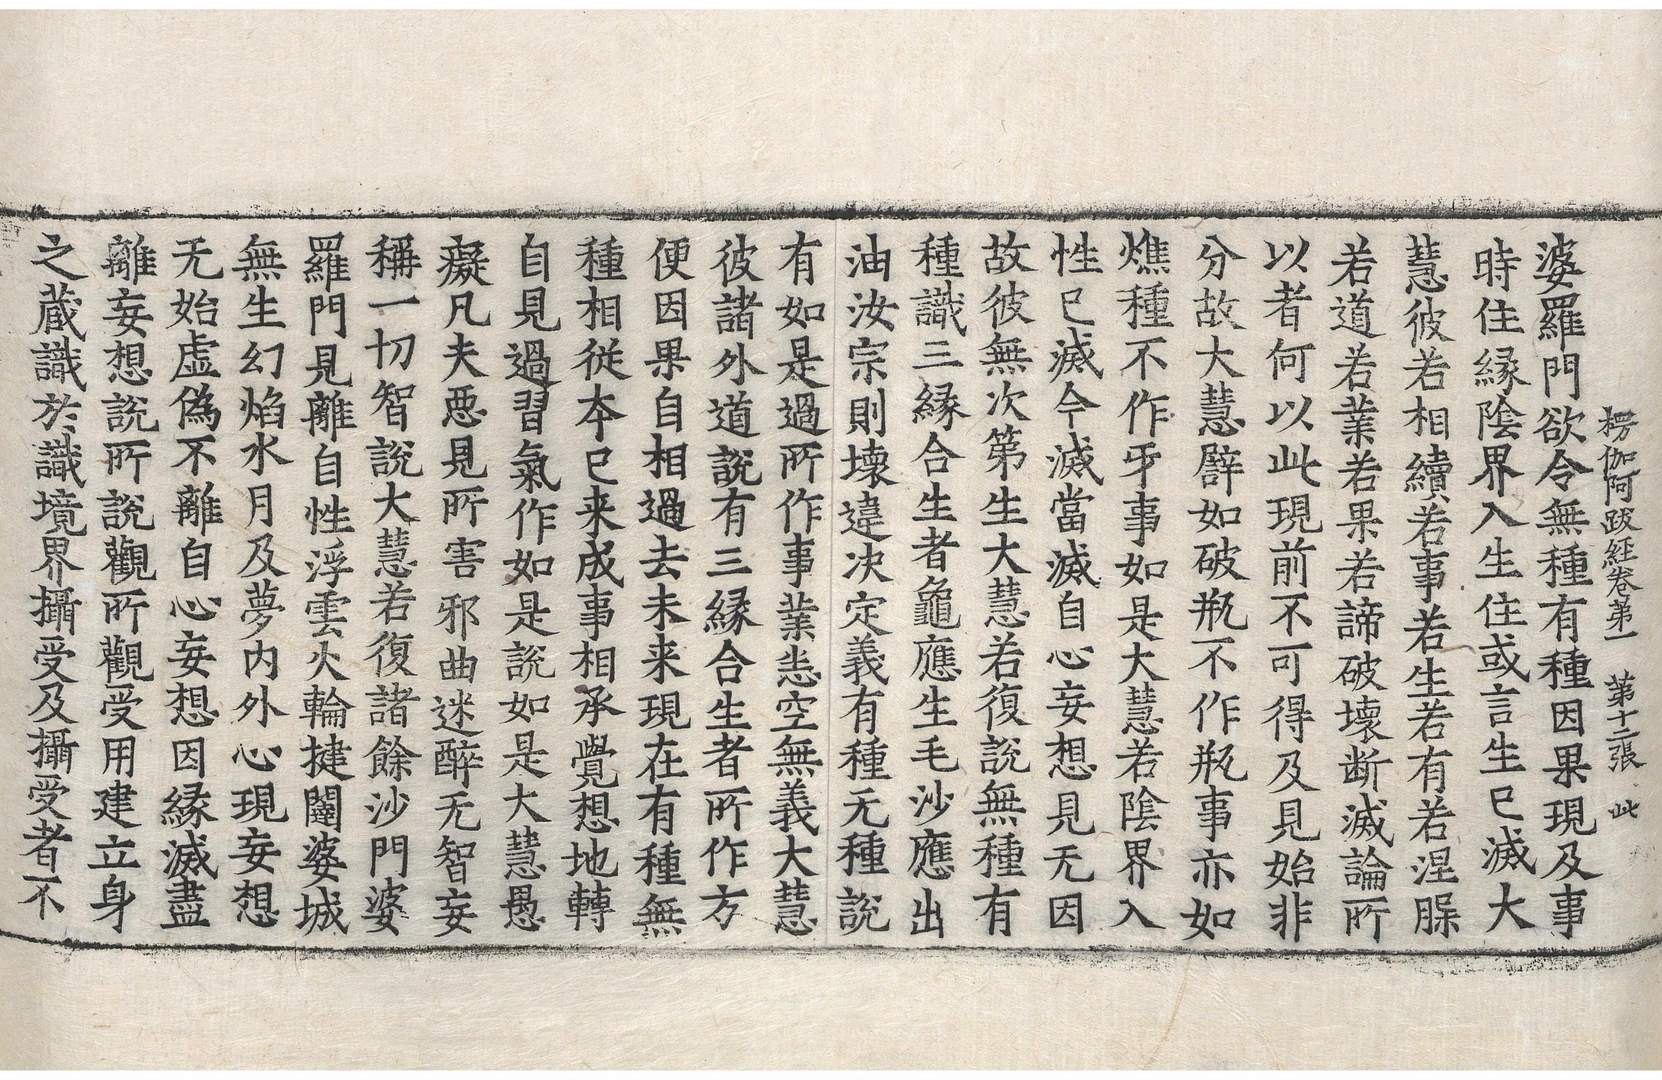 楞伽阿跋經卷第一　第十二張　此
婆羅門欲令無種有種因果現及事
時住縁陰界入生住或言生已滅大
慧彼若相續若事若生若有若涅腺
若道若業若果若諦破壞断滅論所
以者何以此現前不可得及見始非
分故大慧譬如破瓶不作瓶事亦如
燋種不作牙事如是大慧若陰界入
性已滅今滅當滅自心妄想見无因
故彼無次第生大慧若復說無種有
種識三縁合生者龜應生毛沙應出
油汝宗則壞違决定義有種无種說
有如是過所作事業恙空無義大慧
彼諸外道說有三縁合生者所作方
便因果自相過去未来現在有種無
種相相從本已来成事相承覺想地轉
自見過習氣作如是說如是大慧愚
癡凡夫惡見所害邪曲迷醉无智妄
稱一切智說大慧若復諸餘沙門婆
羅門見離自性浮雲火輪揵闥婆城
無生幻焰水月及夢內外心現妄想
无始虛偽不離自心妄想因縁滅盡
離妄想說所說觀所觀受用建立身
之蔵識於識境界攝受及攝受者不